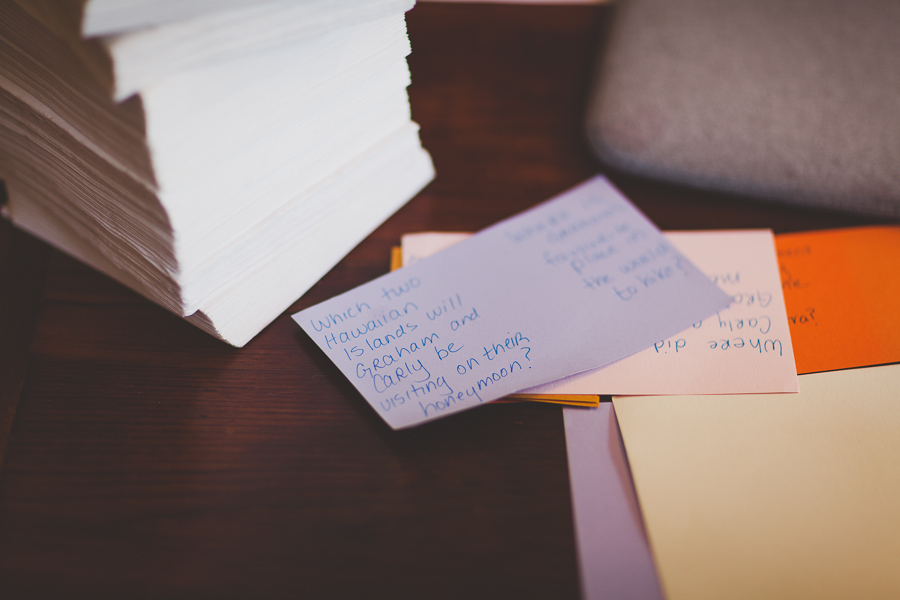 Which two
Hawaiian
Islands will
Graham and
Carly be
visiting on their
honeymoon?
Where is
Graham's
favorite
place in
the world
to bike?
Where did
Carly